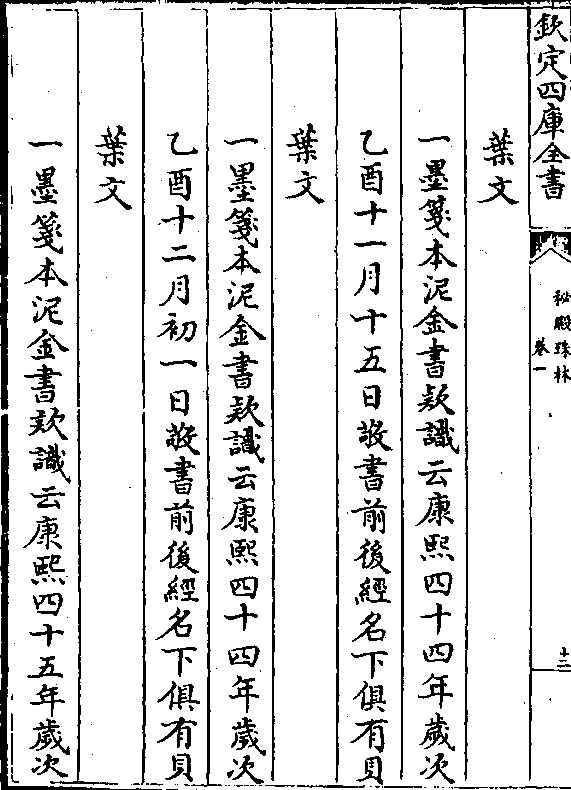 欽定四庫全書
秘殿珠林
卷一
十二
葉文
一墨箋本泥金書款識云康熙四十四年歲次
乙酉十一月十五日敬書前後經名下俱有貝
葉文
一墨箋本泥金書款識云康熙四十四年歲次
乙酉十二月初一日敬書前後經名下俱有貝
葉文
一墨箋本泥金書款識云康熙四十五年歲次